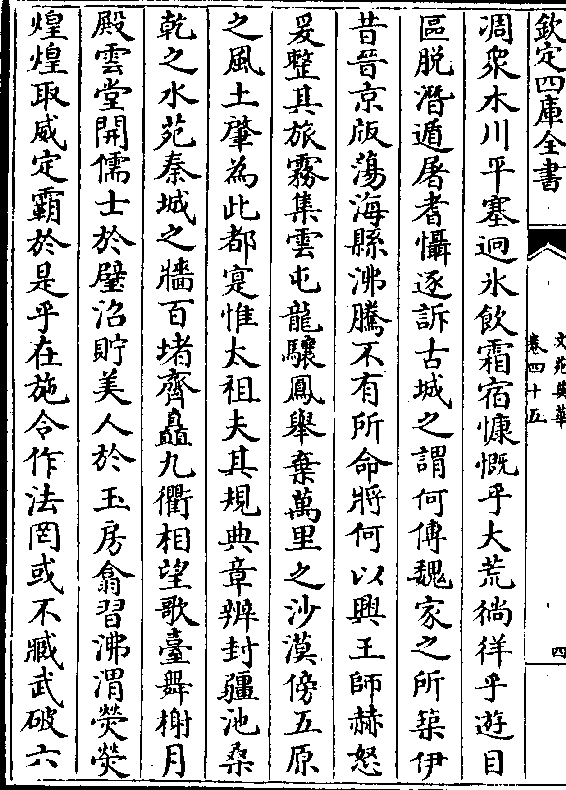 欽定四庫全書
文苑英華
卷四十五
四
凋衆木川平塞迥氷飲霜宿慷慨乎大荒徜徉乎遊目
區脫潛遁屠耆懾逐訴古城之謂何傳魏家之所築伊
昔晉京版蕩海縣沸騰不有所命將何以興王師赫怒
爰整其旅霧集雲屯龍驤鳳舉棄萬里之沙漠傍五原
之風土肇為此都寔惟太祖夫其規典章辨封疆池桑
乾之水苑秦城之牆百堵齊矗九衢相望歌臺舞榭月
殿雲堂開儒士於璧沼貯美人於玉房翕習沸渭熒熒
煌煌取威定霸於是乎在施令作法罔或不臧武破六